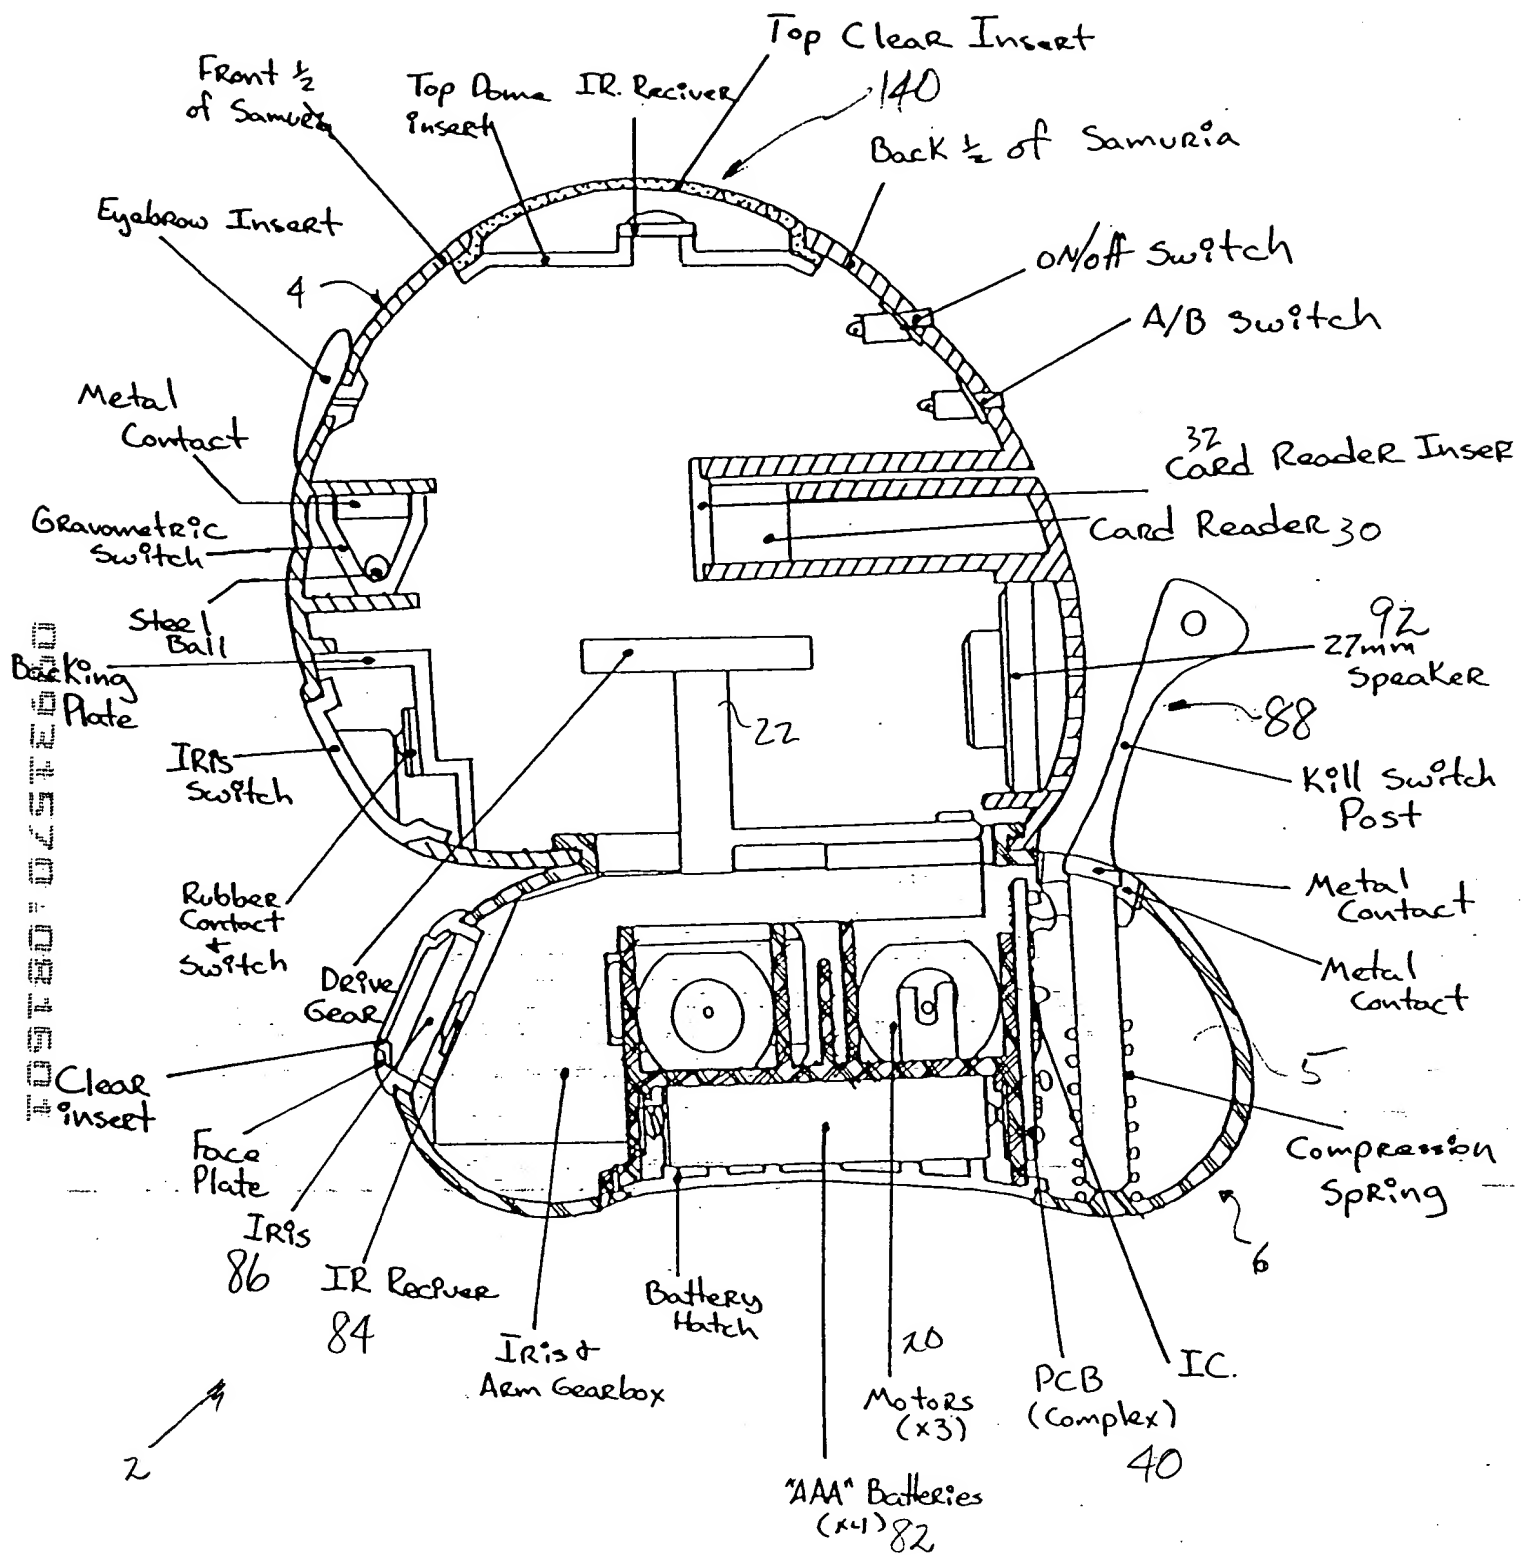 Top Clear Insert
140
Front 1/2
of Samuria
Top Dome
insert
IR. Reciver
Back 1/2 of Samuria
Eyebrow Insert
4
ON/Off Switch
A/B Switch
Metal
Contact
32
Card Reader Inser
Gravometric
Switch
Card Reader 30
Steel
Ball
92
27mm
Speaker
Backing
Plate
22
88
Iris
Switch
Kill Switch
Post
Rubber
Contact
+
Switch
Metal
Contact
Drive
Gear
Metal
Contact
5
Clear
insert
Face
Plate
Compression
Spring
Iris
86
IR Reciver
84
6
Battery
Hatch
Iris +
Arm Gearbox
20
Motors
(x3)
PCB
(Complex)
40
I.C.
2
"AAA" Batteries
(x4) 82